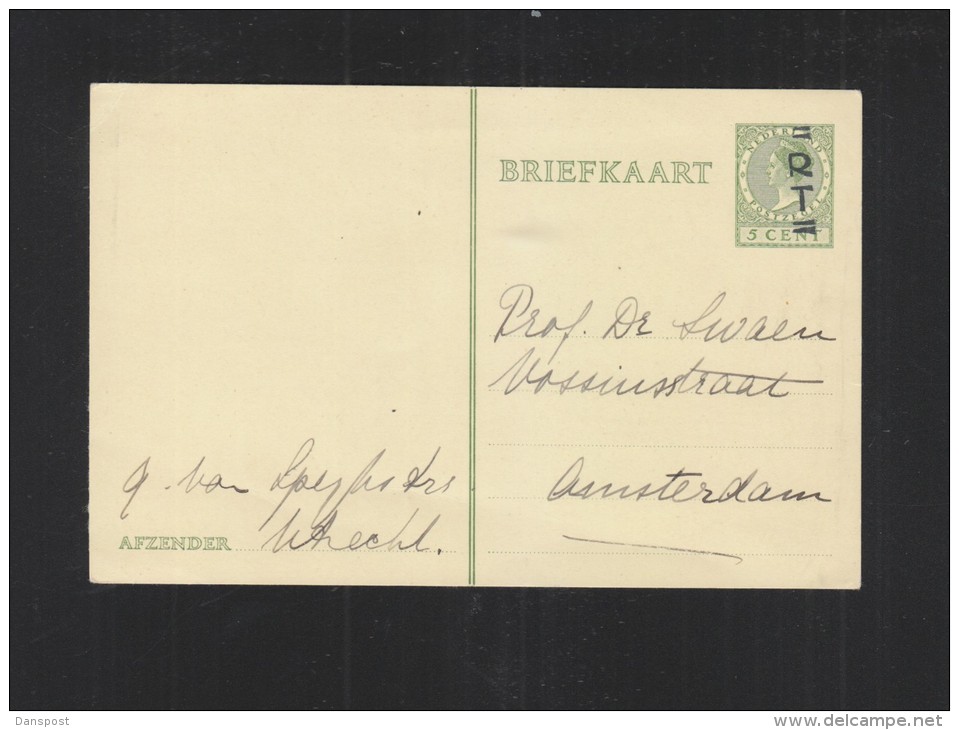 BRIEFKAART
NEDERLAND
POSTZEGEL
5 CENT
R
T
Prof. Dr Swaen
Vossiusstraat
Amsterdam
van
AFZENDER Utrecht.
Danspost
www.delcampe.net